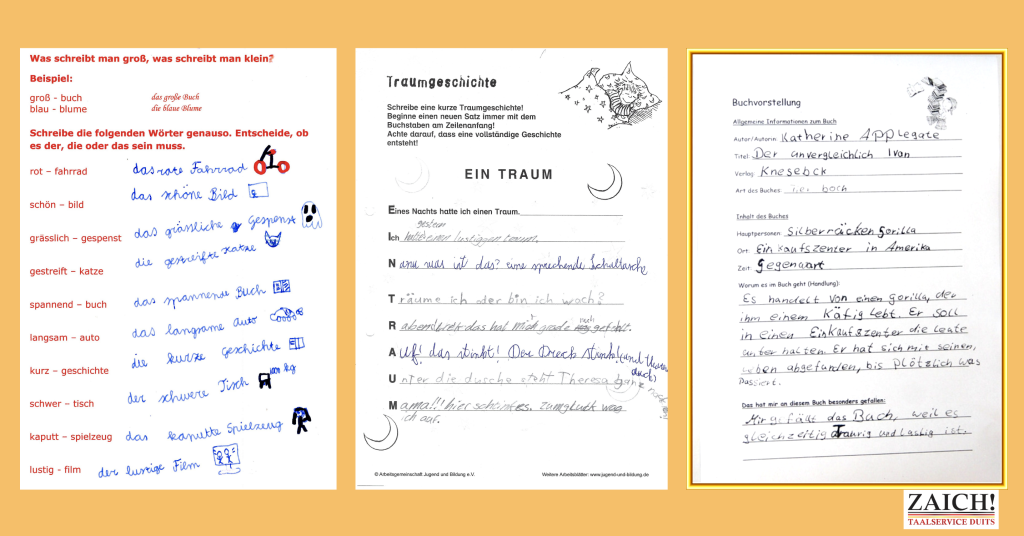 Was schreibt man groß, was schreibt man klein?
Beispiel:
groß - buch das große Buch
blau - blume die blaue Blume
Schreibe die folgenden Wörter genauso. Entscheide, ob
es der, die oder das sein muss.
rot – fahrrad das rote Fahrrad
schön – bild das schöne Bild
grässlich – gespenst das grässliche Gespenst
gestreift – katze die gestreifte Katze
spannend – buch das spannende Buch
langsam – auto das langsame Auto
kurz – geschichte die kurze Geschichte
schwer – tisch der schwere Tisch
kaputt – spielzeug das kaputte Spielzeug
lustig - film der lustige Film
Traumgeschichte
Schreibe eine kurze Traumgeschichte!
Beginne einen neuen Satz immer mit dem
Buchstaben am Zeilenanfang!
Achte darauf, dass eine vollständige Geschichte
entsteht!
EIN TRAUM
Eines Nachts hatte ich einen Traum.
gestern
Ich hatte einen lustiggen traum.
Nanu was ist das? eine sprechende Schultasche
Träume ich oder bin ich wach?
Aber das hat mich grade noch gefehlt.
Auf! das stinkt! Der Dreck stinkt! (und
Unter die dusche steht Theresa ganz
Mama!!! hier schein es. zum glück wag
ich auf.
© Arbeitsgemeinschaft Jugend und Bildung e.V. Weitere Arbeitsblätter: www.jugend-und-bildung.de
Buchvorstellung
Allgemeine Informationen zum Buch
Autor/Autorin: Katherine APPlegate
Titel: Der unvergleichlich Ivan
Verlag: Knesebck
Art des Buches:
Inhalt des Buches
Hauptpersonen: Silberräcken Gorilla
Ort: Einkaufszenter in Amerika
Zeit: Gegenwart
Worum es im Buch geht (Handlung):
Es handelt von einen Gorilla, der
ihm einem Käfig lebt. Er soll
in einen Einkaufszenter die leute
unter halten. Er hat sich mit seinen,
leben abgefunden, bis Plötzlich was
Passiert.
Das hat mir an diesem Buch besonders gefallen:
Mir gefällt das Buch, weil es
gleichzeitig Traurig und Lustig ist.
ZAICH!
TAALSERVICE DUITS